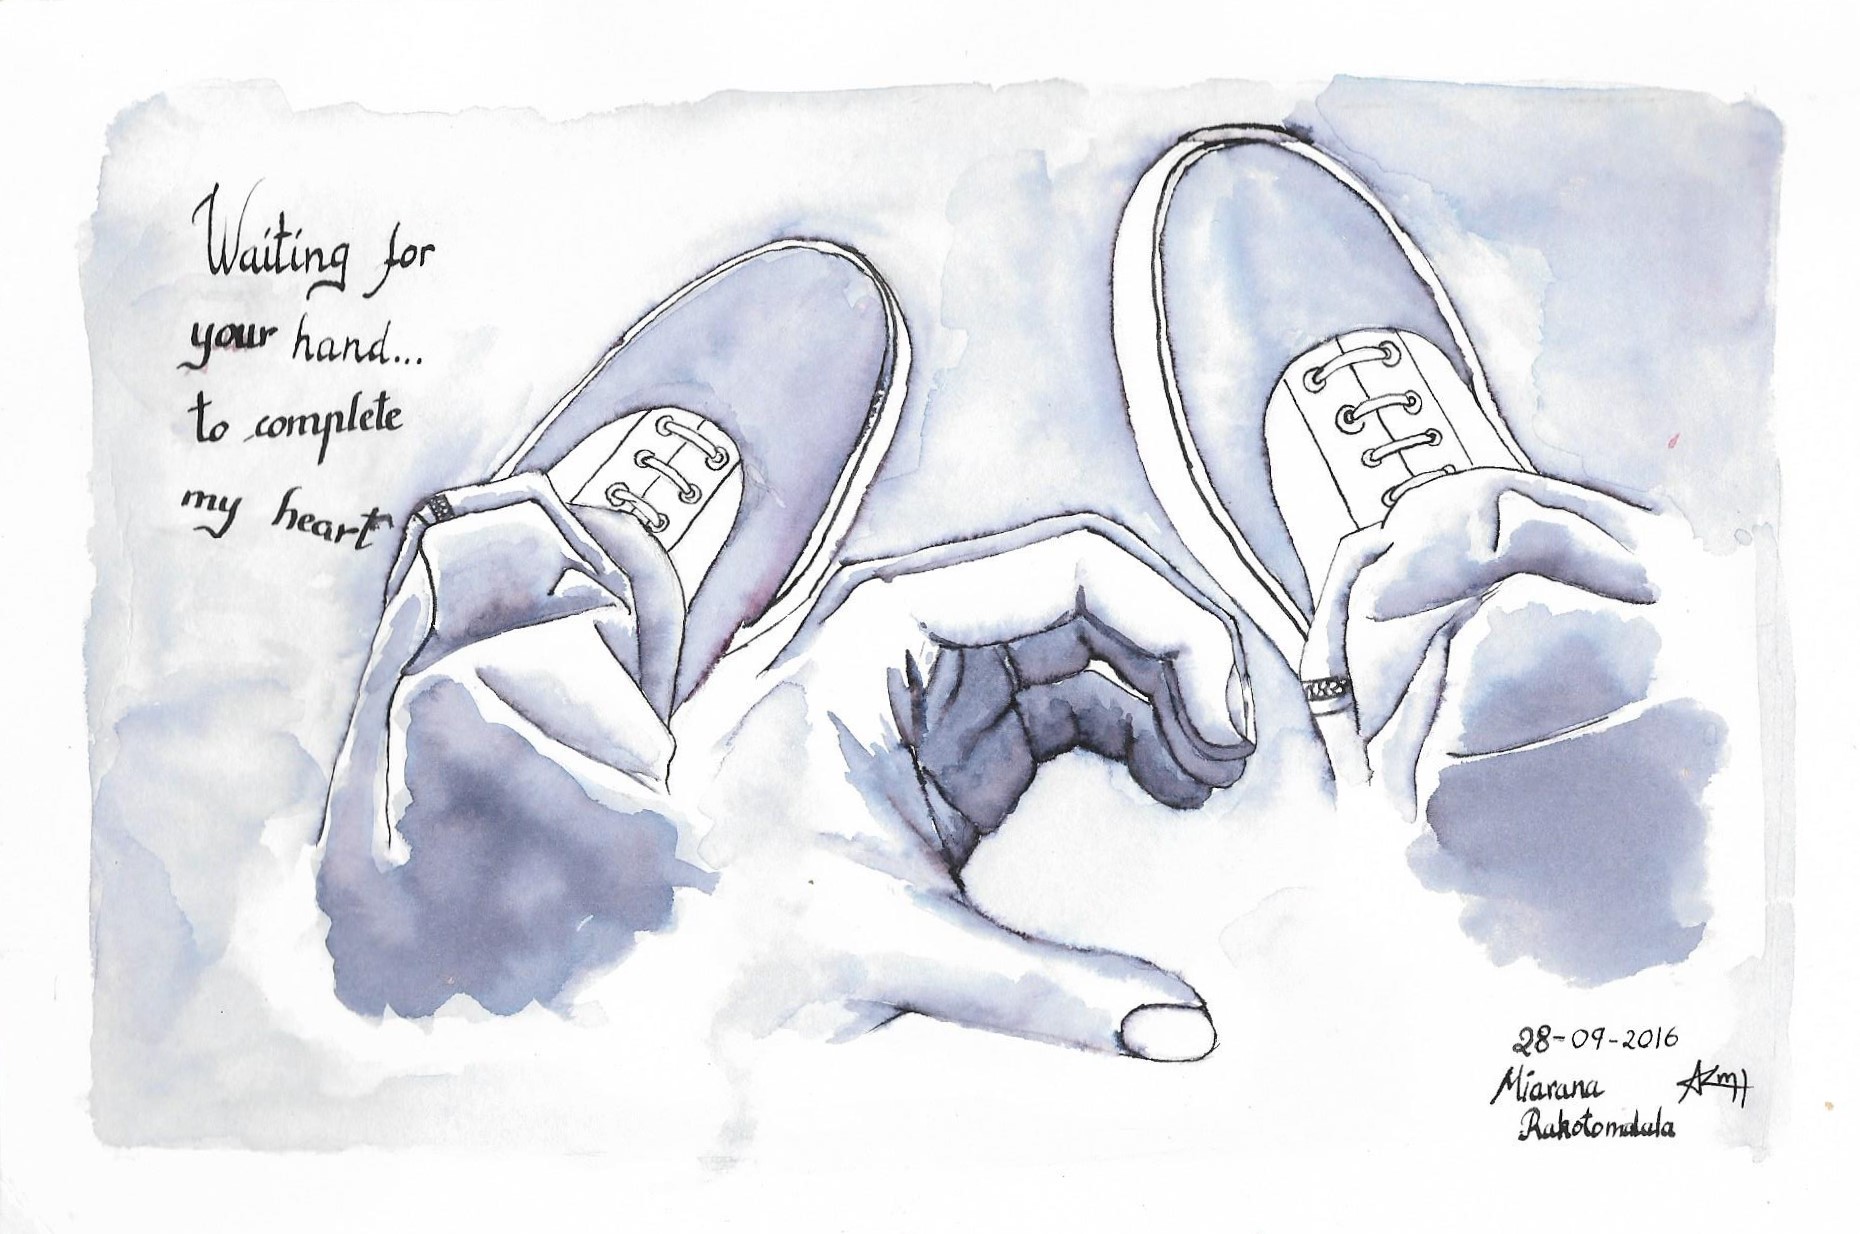 Waiting for
your hand...
to complete
my heart
28-09-2016
Miarana
Rakotomalala